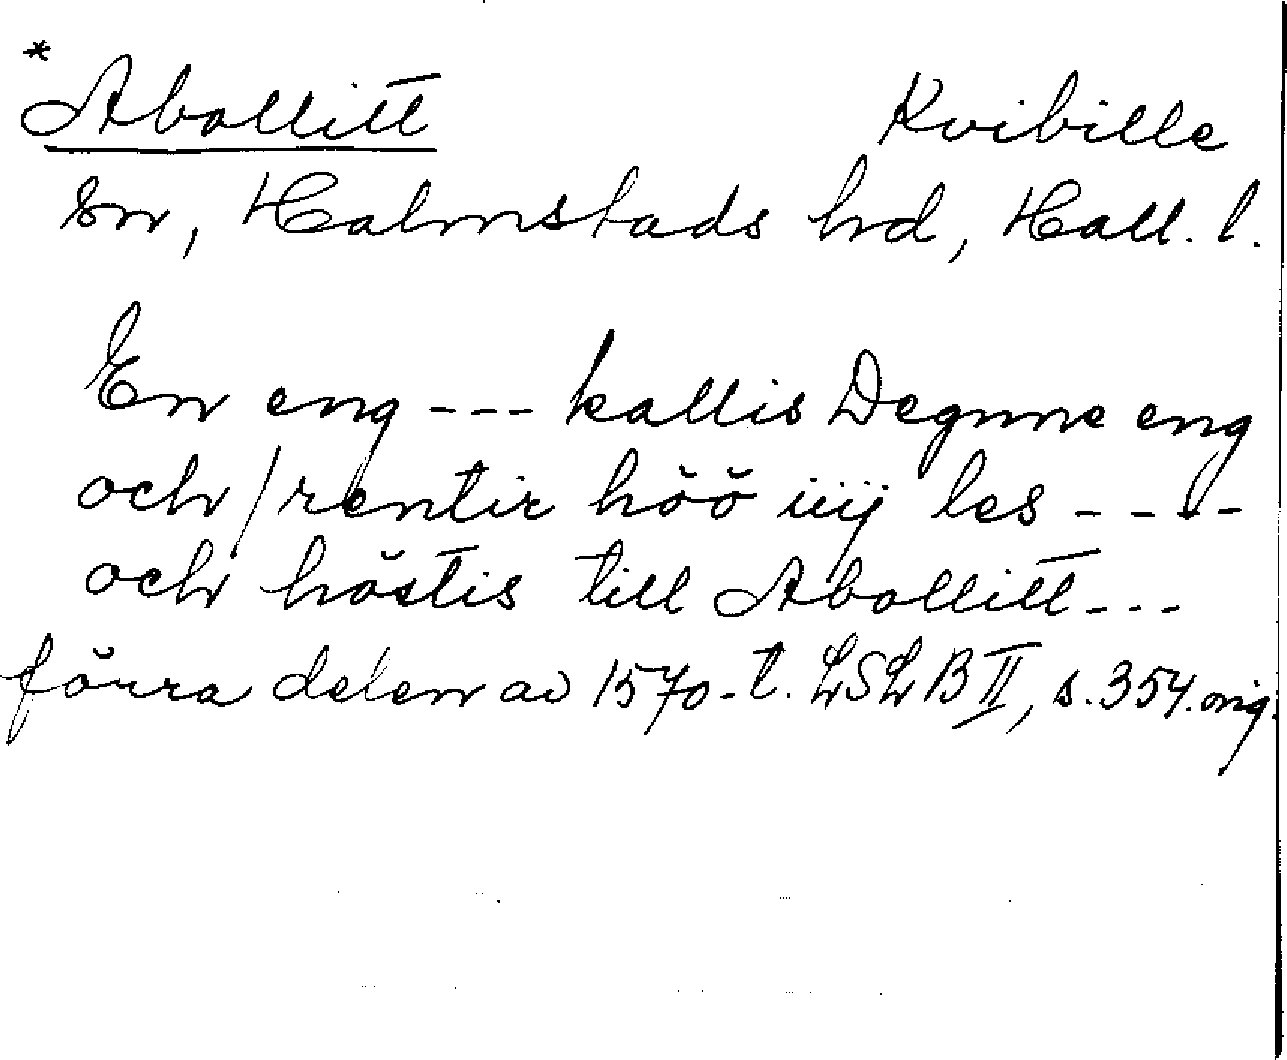 *
Abollitt Kvibille
sn, Halmstads hd, Hall. l.
En eng --- kallis Degnne eng
och / rentir höö iiij les ----
och höstis till Abollitt ---
förra delen av 1570-t. LSLB II, s. 354. orig.